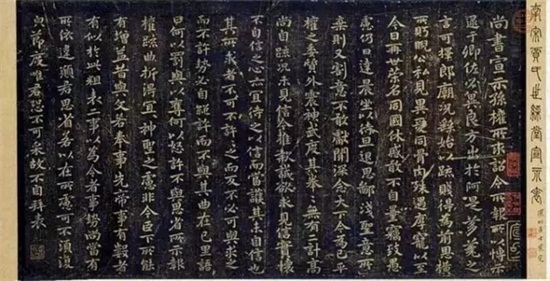 南宋賈氏世綵堂宣示表
尚書宣示孫權所求詔令所報所以博示
逮于卿佐必冀良方出於阿是芻蕘之
言可擇郎廟況繇始以疏賤得為前恩橫
所盱睨公私見異愛同骨肉殊遇厚寵以至
今日再世榮名同國休慼敢不自量竊致愚
慮仍日達晨坐以待旦退思鄙淺聖意所
棄則又割意不敢獻聞深念天下今為已平
權之委質外震神武度其拳拳無有二計高
尚自疏況未見信今推款誠欲求見信實懷
不自信之心亦宜待之以信而當護其未自信也
其所求者不可不許許之而反不必可與求之
而不許勢必自絕許而不與其曲在己里語
曰何以罰與以奪何以怒許不與思省所示報
權疏曲折得宜神聖之慮非今臣下所能
有增益昔與文若奉事先帝事有數者
有似於此粗表二事以為今者事勢尚當有
所依違願君思省若以在所慮可不須復
貿節度唯君恐不可采故不自拜表